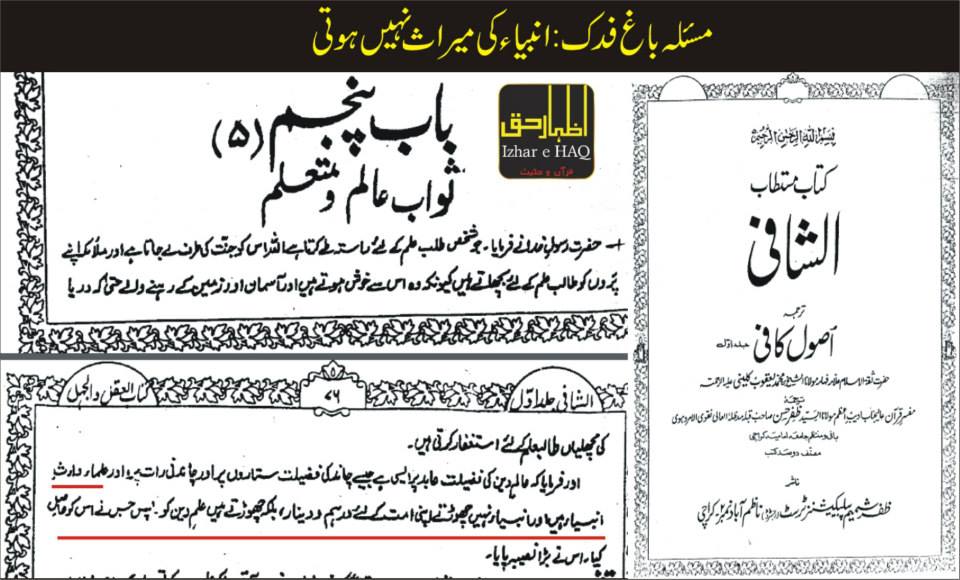 مسئلہ باغ فدک: انبیاء کی میراث نہیں ہوتی
باب پنجم (۵)
ثواب عالم و متعلم
اظہار حق
Izhar e HAQ
قرآن و حدیث
حضرت رسول خدا نے فرمایا۔ جو شخص طلب علم کے لئے راستہ طے کرتا ہے اللہ اس کو جنت کی طرف لے جاتا ہے اور ملائکہ اپنے
پروں کو طالب علم کے لئے بچھاتے ہیں کیونکہ وہ اس سے خوش ہوتے ہیں اور آسمان اور زمین کے رہنے والے حتی کہ دریا
الشافی جلد اول
۷۶
کتاب العقل والجہل
کی مچھلیاں طالبعلم کے لئے استغفار کرتی ہیں۔
اور فرمایا کہ عالم دین کی فضیلت عابد پر ایسی ہے جیسے چاند کی فضیلت ستاروں پر اور چاندنی رات پر اور علماء وارث
انبیاء ہیں اور انبیاء نہیں چھوڑتے اپنی امت کے لئے درہم و دینار، بلکہ چھوڑتے ہیں علم دین کو۔ پس جس نے اس کو حاصل
کیا۔ اس نے بڑا نصیبہ پایا۔
بسم اللہ الرحمن الرحیم
کتاب مستطاب
الشافی
ترجمہ
اصول کافی جلد اول
حضرت ثقۃ الاسلام علامہ فہامہ مولانا الشیخ محمد یعقوب کلینی علیہ الرحمہ
ترجمہ
مفسر قرآن عالیجناب ادیب اعظم مولانا السید ظفر حسن صاحب قبلہ مدظلہ العالی نقوی الامروہوی
بانی و منتظم جامعہ امامیہ کراچی
مصنف دو صد کتب
ناشر
ظفر شمیم پبلیکیشنز ٹرسٹ ناظم آباد نمبر ۲ کراچی